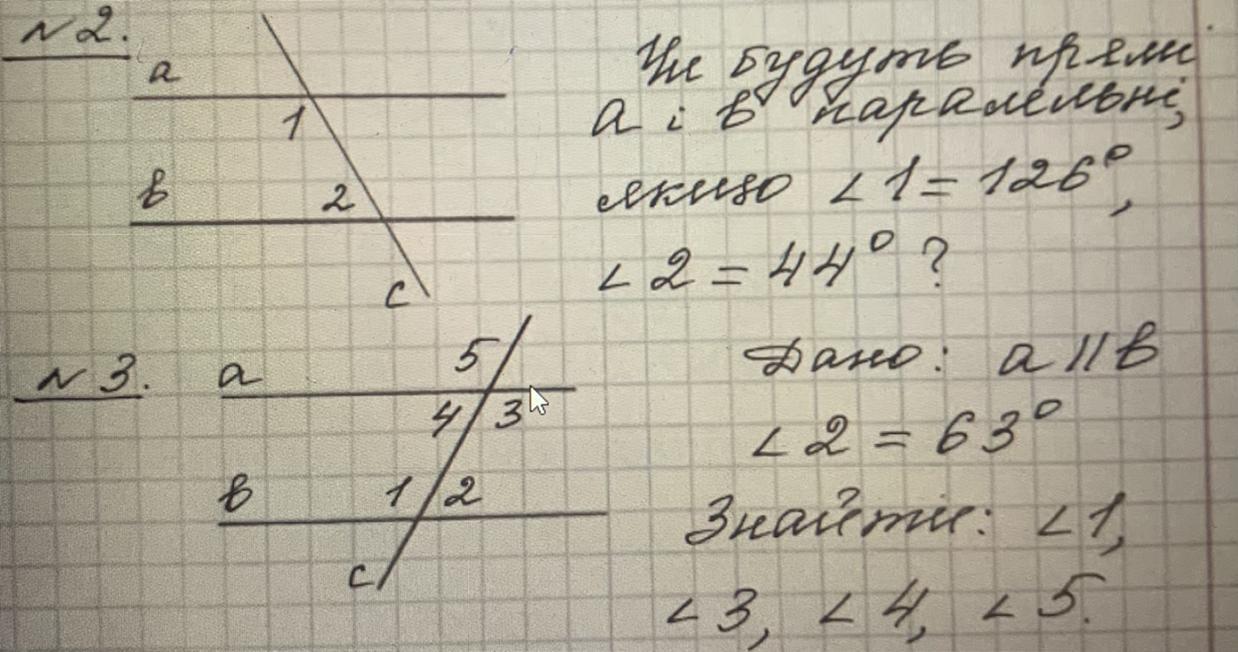 №2.
a
1
b
2
c
Чи будуть прямі
a і b паралельні,
якщо ∠1 = 126°,
∠2 = 44° ?
№3.
a
5
4 3
b
1 2
c
Дано: a || b
∠2 = 63°
Знайти: ∠1,
∠3, ∠4, ∠5.